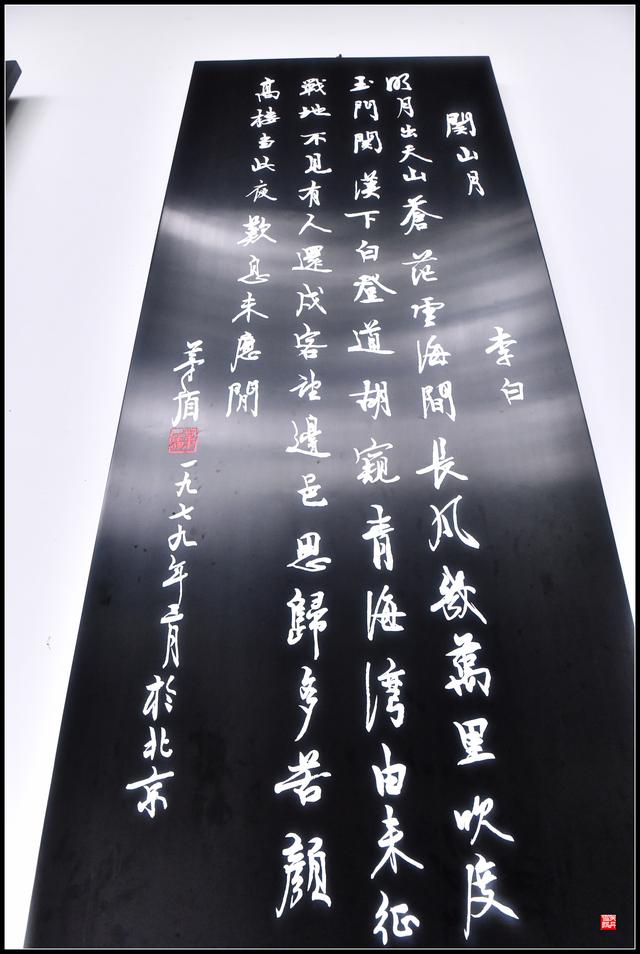 関山月 李白
明月出天山蒼茫雲海間長風幾萬里吹度
玉門関漢下白登道胡窺青海灣由来征
戰地不見有人還戍客望邊邑思歸多苦顏
高樓當此夜歎息未應閒
茅盾 一九七九年三月於北京